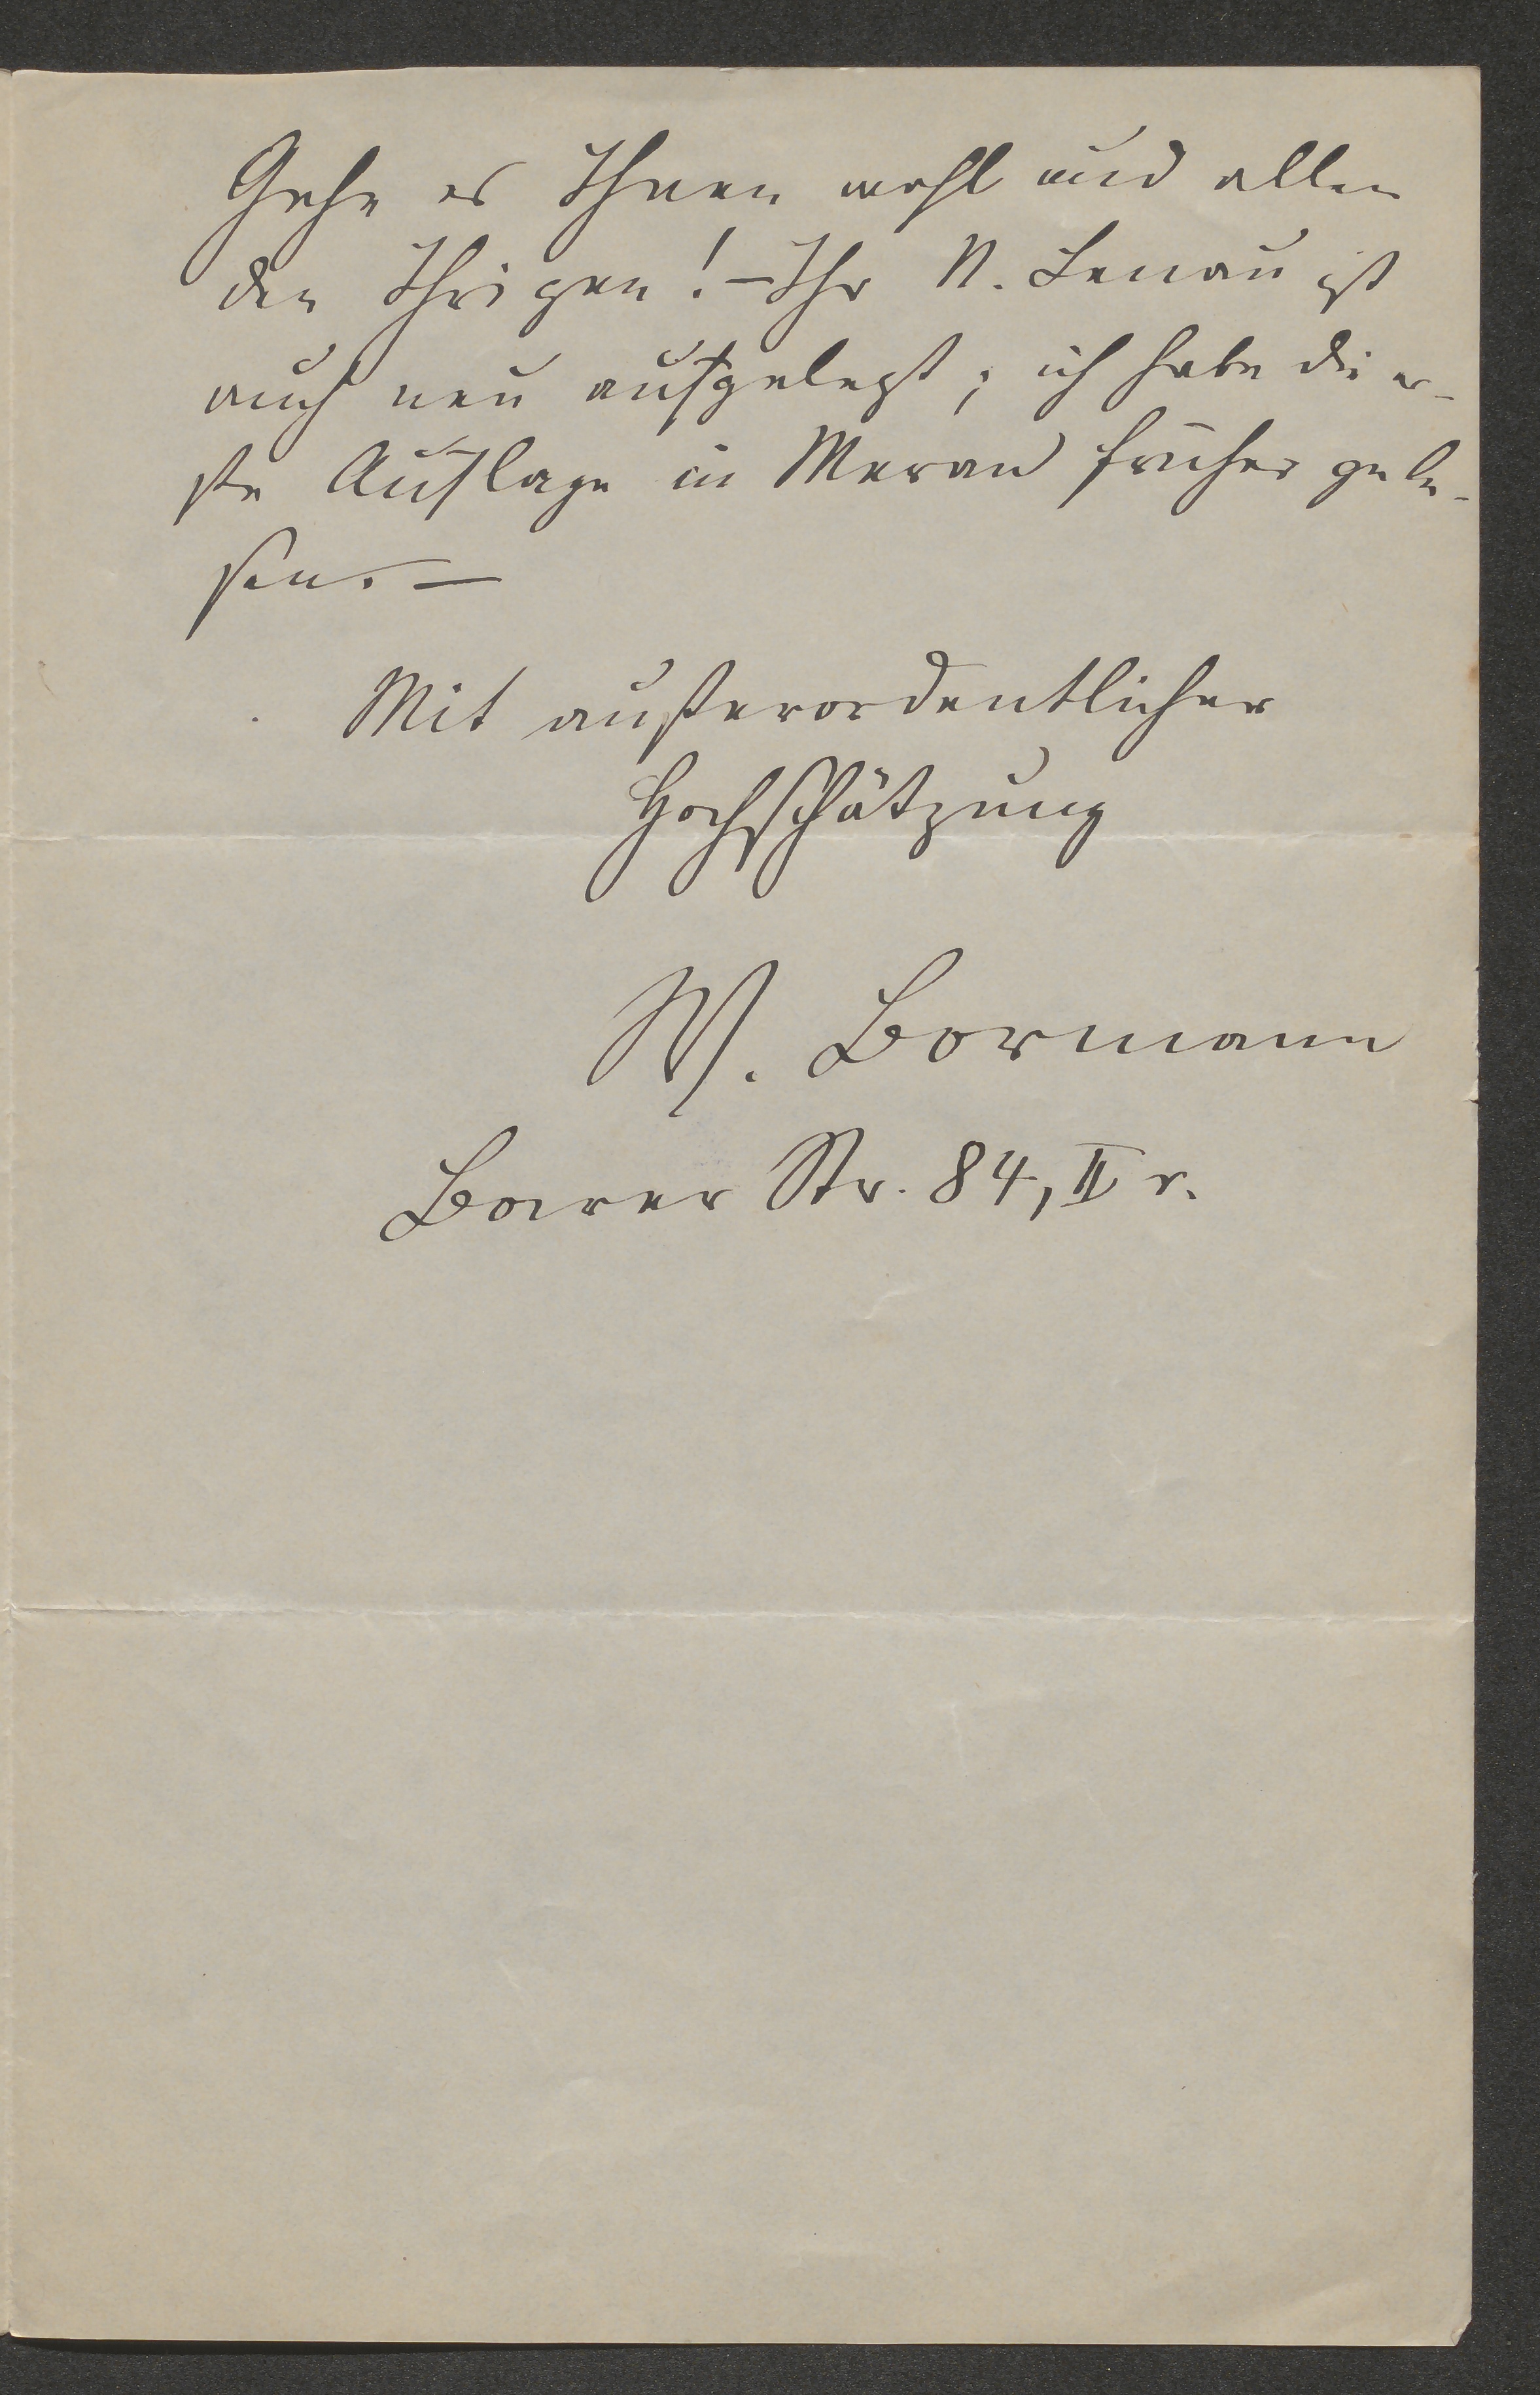 Gehe es Ihnen wohl und allen
den Ihrigen! – Ihr N. Lenau ist
auch neu aufgelegt; ich habe die er-
ste Auflage in Meran früher gele-
sen. –
Mit außerordentlicher
Hochschätzung
W. Bormann
Barer Str. 84, II r.